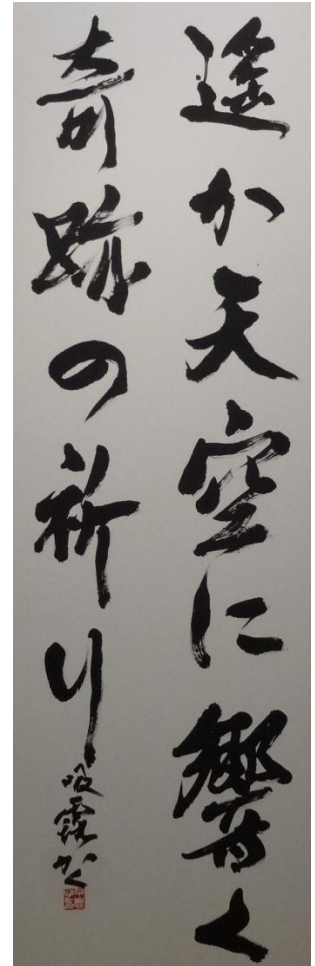 遥か天空に響く
奇跡の祈り